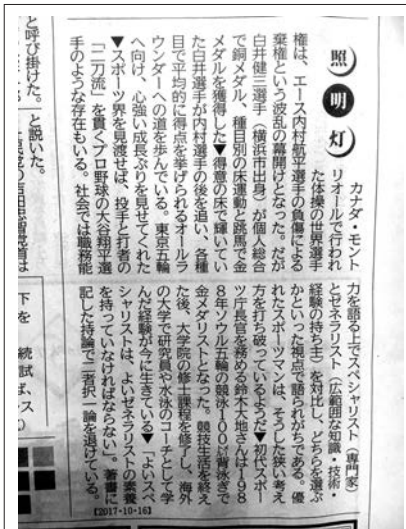 照明灯
カナダ・モント
リオールで行われ
た体操の世界選手
権は、エース内村航平選手の負傷による
棄権という波乱の幕開けとなった。だが
白井健三選手(横浜市出身)が個人総合
で銅メダル、種目別の床運動と跳馬で金
メダルを獲得した▼得意の床で輝いてい
た白井選手が内村選手の後を追い、各種
目で平均的に得点を挙げられるオールラ
ウンダーへの道を歩んでいる。東京五輪
へ向け、心強い成長ぶりを見せてくれた
▼スポーツ界を見渡せば、投手と打者の
「二刀流」を貫くプロ野球の大谷翔平選
手のような存在もいる。社会では職務能
力を語る上でスペシャリスト(専門家)
とゼネラリスト(広範囲な知識・技術・
経験の持ち主)を対比し、どちらを選ぶ
かといった視点で語られがちである。優
れたスポーツマンは、そうした狭い考え
方を打ち破っているようだ▼初代スポー
ツ庁長官を務める鈴木大地さんは198
8年ソウル五輪の競泳100㍍背泳ぎで
金メダリストとなった。競技生活を終え
た後、大学院の修士課程を修了し、海外
の大学で研究員や水泳のコーチとして学
んだ経験が今に生きている▼「よいスペ
シャリストは、よいゼネラリストの素養
を持っていなければならない」。著書に
記した持論で二者択一論を退けている。
【2017・10・16】
と説いた。
と呼び掛けた。